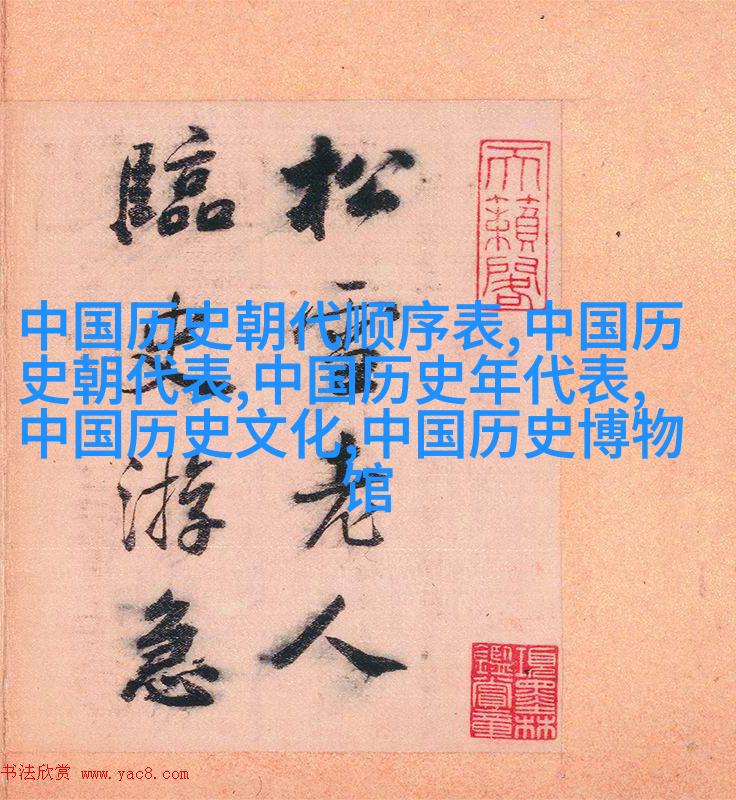 中国历史朝代顺序表,中国历
史朝代表,中国历史年代表,
中国历史文化,中国历史博物
馆
松雪老人
臨史游急
天籟閣
項墨林
鑑賞章
书法欣赏 www.yac8.com